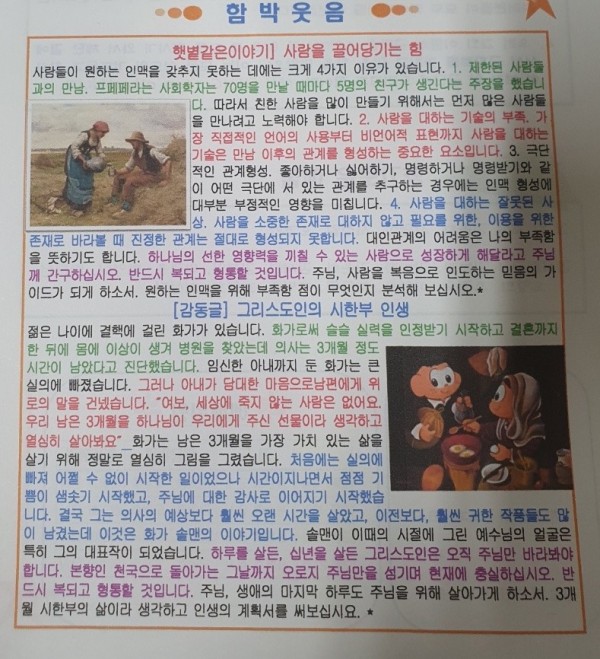 함 박 웃 음
햇볕같은이야기] 사람을 끌어당기는 힘
사람들이 원하는 인맥을 갖추지 못하는 데에는 크게 4가지 이유가 있습니다. 1. 제한된 사람들
과의 만남. 프페페라는 사회학자는 70명을 만날 때마다 5명의 친구가 생긴다는 주장을 했습니
다. 따라서 친한 사람을 많이 만들기 위해서는 먼저 많은 사람들
을 만나려고 노력해야 합니다. 2. 사람을 대하는 기술의 부족. 가
장 직접적인 언어의 사용부터 비언어적 표현까지 사람을 대하는
기술은 만남 이후의 관계를 형성하는 중요한 요소입니다. 3. 극단
적인 관계형성. 좋아하거나 싫어하기, 명령하거나 명령받기와 같
이 어떤 극단에 서 있는 관계를 추구하는 경우에는 인맥 형성에
대부분 부정적인 영향을 미칩니다. 4. 사람을 대하는 잘못된 사
상. 사람을 소중한 존재로 대하지 않고 필요를 위한, 이용을 위한
존재로 바라볼 때 진정한 관계는 절대로 형성되지 못합니다. 대인관계의 어려움은 나의 부족함
을 뜻하기도 합니다. 하나님의 선한 영향력을 끼칠 수 있는 사람으로 성장하게 해달라고 주님
께 간구하십시오. 반드시 복되고 형통할 것입니다. 주님, 사람을 복음으로 인도하는 믿음의 가
이드가 되게 하소서. 원하는 인맥을 위해 부족함 점이 무엇인지 분석해 보십시오.*
[감동글] 그리스도인의 시한부 인생
젊은 나이에 결핵에 걸린 화가가 있습니다. 화가로써 슬슬 실력을 인정받기 시작하고 결혼까지
한 뒤에 몸에 이상이 생겨 병원을 찾았는데 의사는 3개월 정도
시간이 남았다고 진단했습니다. 임신한 아내까지 둔 화가는 큰
실의에 빠졌습니다. 그러나 아내가 담대한 마음으로남편에게 위
로의 말을 건넸습니다. "여보, 세상에 죽지 않는 사람은 없어요.
우리 남은 3개월을 하나님이 우리에게 주신 선물이라 생각하고
열심히 살아봐요" 화가는 남은 3개월을 가장 가치 있는 삶을
살기 위해 정말로 열심히 그림을 그렸습니다. 처음에는 실의에
빠져 어쩔 수 없이 시작한 일이었으나 시간이지나면서 점점 기
쁨이 샘솟기 시작했고, 주님에 대한 감사로 이어지기 시작했습
니다. 결국 그는 의사의 예상보다 훨씬 오랜 시간을 살았고, 이전보다, 훨씬 귀한 작품들도 많
이 남겼는데 이것은 화가 솔맨의 이야기입니다. 솔맨이 이때의 시절에 그린 예수님의 얼굴은
특히 그의 대표작이 되었습니다. 하루를 살든, 십년을 살든 그리스도인은 오직 주님만 바라봐야
합니다. 본향인 천국으로 돌아가는 그날까지 오로지 주님만을 섬기며 현재에 충실하십시오. 반
드시 복되고 형통할 것입니다. 주님, 생애의 마지막 하루도 주님을 위해 살아가게 하소서. 3개
월 시한부의 삶이라 생각하고 인생의 계획서를 써보십시요. *